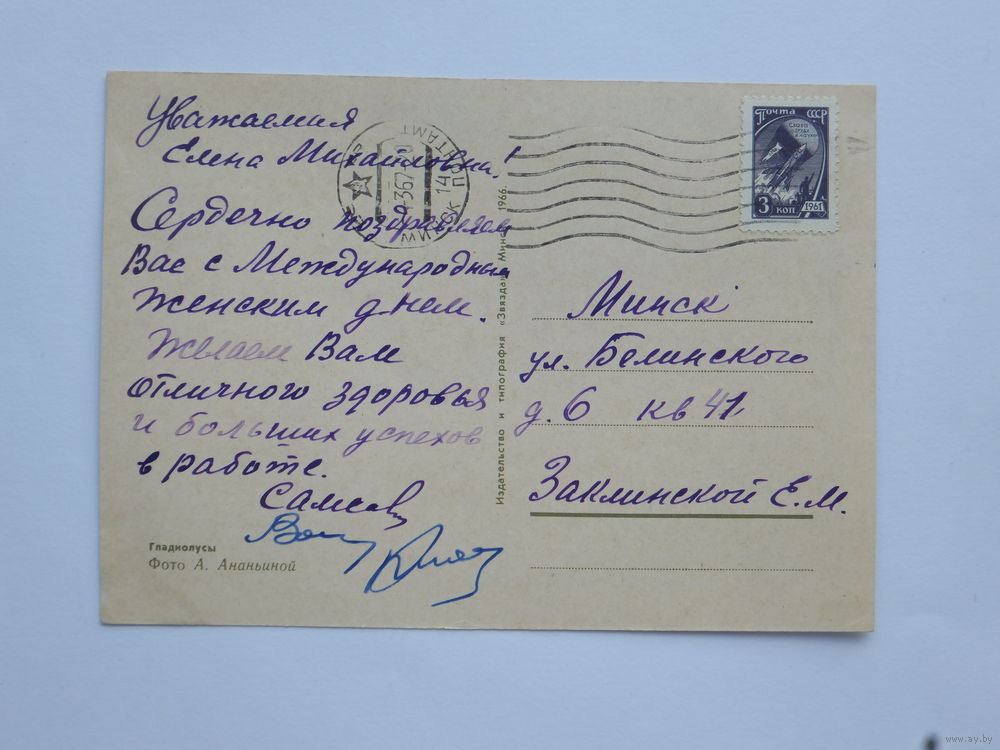 Уважаемая
Елена Михайловна!
Сердечно поздравляем
Вас с Международным
женским днем.
Желаем Вам
отличного здоровья
и больших успехов
в работе.
Гладиолусы
Фото А. Ананьиной
Издательство и типография «Звязда», Минск 1966.
МИНСК 14
ПОЧТАМТ
Почта СССР
Слава труду и науке
3 коп
1961
Минск
ул. Белинского
д. 6 кв 41
Заклинской Е.М.
www.ay.by